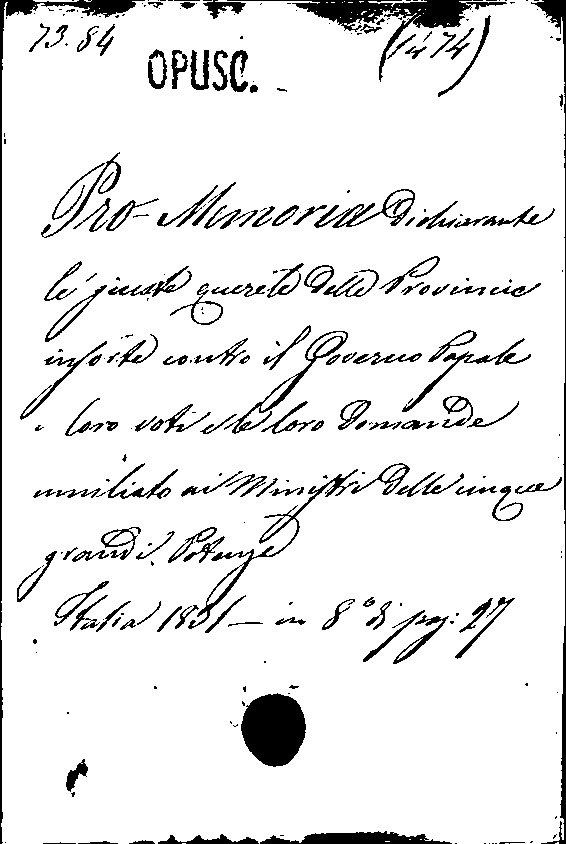 73.84 (1474)
OPUSC.
Pro-Memoria dichiarante
le giuste querele delle Provincie
insorte contro il Governo Papale
i loro voti e le loro domande
umiliato ai Ministri delle cinque
grandi Potenze
Italia 1831 — in 8° di pag: 27